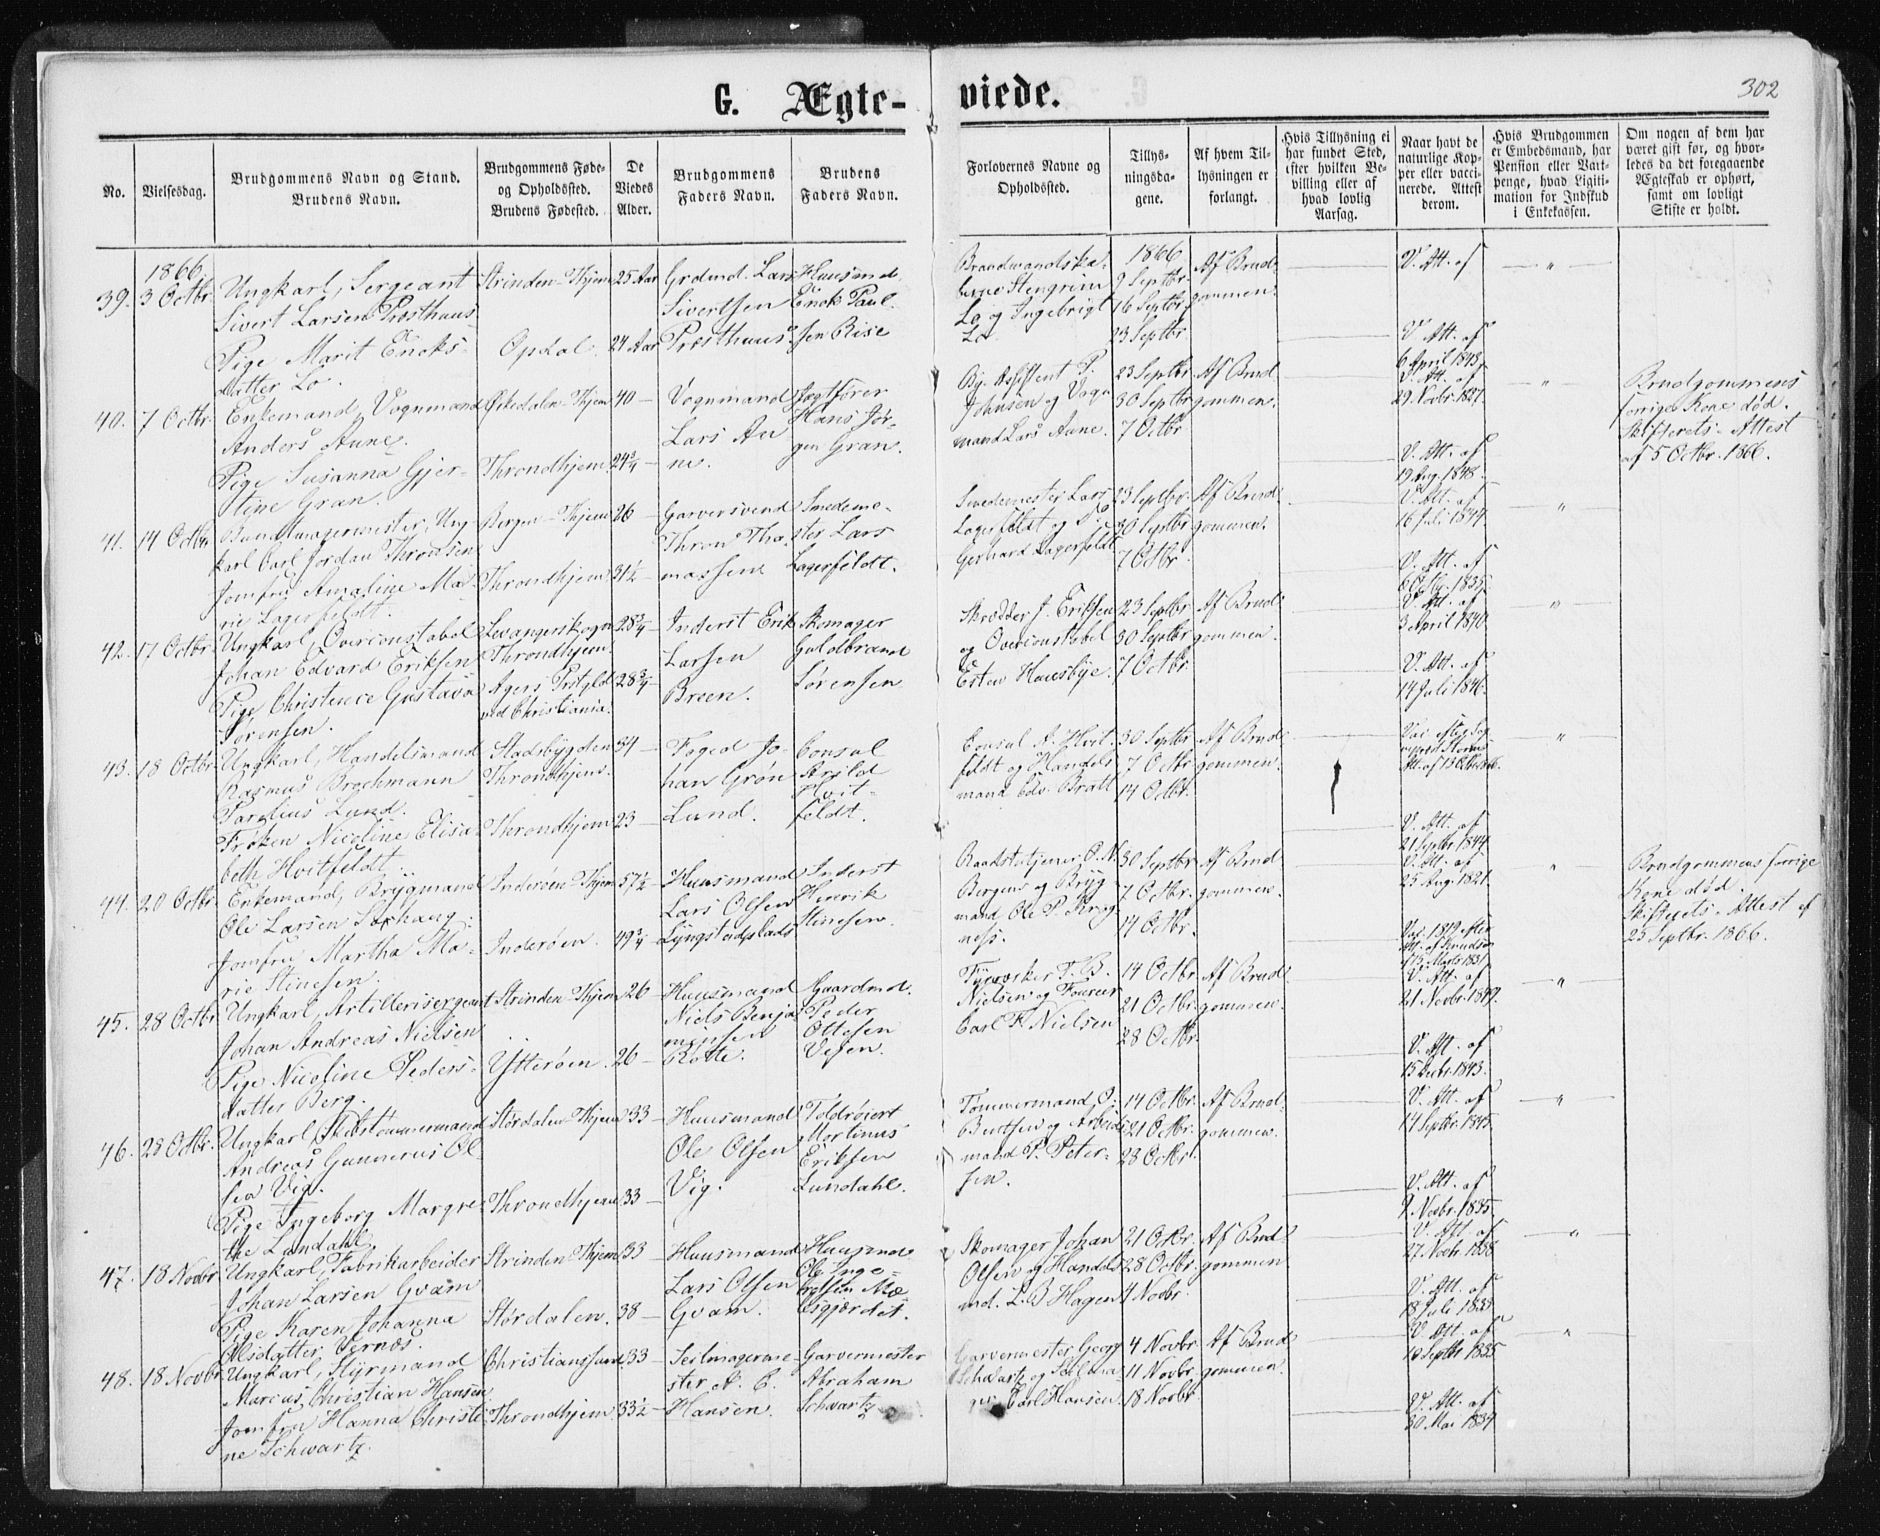 302
G. Ægte-
viede.
No.
Vielsesdag.
Brudgommens Navn og Stand.
Brudens Navn.
Brudgommens Føde-
og Opholdssted.
Brudens Fødested.
De
Viedes
Alder.
Brudgommens
Faders Navn.
Brudens
Faders Navn.
Forlovernes Navne og
Opholdssted.
Tillys-
ningsda-
gene.
Af hvem Til-
lysningen er
forlangt.
Hvis Tillysning ei
har fundet Sted,
efter hvilken Be-
villing eller af
hvad lovlig
Aarsag.
Naar havt de
naturlige Kop-
per eller vacci-
nerede. Attest
derom.
Hvis Brudgommen
er Embedsmand, har
Pension eller Vart-
penge, hvad Ligiti-
mation for Indskud
i Enkekassen.
Om nogen af dem har
været gift før, og hvor-
ledes da det foregaaende
Ægteskab er ophørt,
samt om lovligt
Skifte er holdt.
1866
39. 3 Octbr.
Ungkarl, Sergeant
Sivert Larsen Præsthuus
Pige Marit Enoks-
datter Lo.
Strinden-Thjem
Opdal.
25 Aar
24 Aar
Grdmd. Lars
Sivertsen
Præsthuus
Huusmd.
Enok Paul-
sen Rise
Stengrim
Lo og Ingebrigt
Lo
1866
9 Septbr
16 Septbr
23 Septbr
Af Brud-
gommen.
V. Att. af
V. Att. af
6 April 1848
40. 7 Octbr.
Enkemand, Vognmand
Anders Aune.
Pige Susanna Gjer-
stine Gran.
Orkedalen-Thjem
Throndhjem
40 —
24 3/4 —
Vognmand
Lars Au
ne.
Jagtfører
Hans Jør-
gen Gran.
By.
Johnsen og Vogn
mand Lars Aune.
23 Septbr
30 Septbr
7 Octbr
Af Brud
gommen.
V. Att. af
29 Novbr. 1827.
V. Att. af
19 Aug. 1848.
Brudgommens
forrige Kone død.
Skifterets-Attest
af 5 Octbr. 1866.
41. 14 Octbr
Buntmagermester, Ung-
karl Carl Jordan Thronsen
Jomfru Amaline Ma-
rie Lagerfeldt.
Bergen-Thjem
Throndhjem
26 —
31 1/2 —
Garversvend
Thron Tho
massen
Smedeme-
ster Lars
Lagerfeldt.
Smedemester Lars
Lagerfeldt og
Gerhard Lagerfeldt
23 Septbr.
30 Septbr
7 Octbr.
Af Brud
gommen.
V. Att. af
16 Juli 1844
V. Att. af
6 Octbr. 1835.
42. 17 Octbr.
Ungkarl, Overconstabel
Johan Edvard Eriksen
Pige Christence Gustava
Sørensen.
Levangerskogn
Throndhjem.
Agers Præstgld
ved Christiania.
28 3/4 —
28 3/4 —
Inderst Erik
Larsen
Breen.
Skomager
Guldbrand
Sørensen
Skrædder J. Eriksen
og Overconstabel
Esten Huusbye.
23 Septbr
30 Septbr
7 Octbr.
Af Brud-
gommen.
V. Att. af
3 April 1840
V. Att. af
14 Juli 1846.
43. 18 Octbr.
Ungkarl, Handelsmand
Rasmus Brochmann
Parelius Lund.
Frøken Nicoline Elisa-
beth Hvitfeldt.
Stadsbygden
Throndhjem.
Throndhjem
34 —
23 —
Foged Jo-
han Grøn
Lund.
Consul
Arild
Hvit-
feldt.
Consul A. Hvit-
feldt og Handels
mand Edv. Bratt
30 Septbr.
7 Octbr.
14 Octbr.
Af Brud-
gommen.
V. Att. af
21 Septbr 1844
44. 20 Octbr
Enkemand, Brygmand
Ole Larsen
Jomfru Martha Ma-
rie Stinesen.
Inderøen-Thjem
Inderøen.
57 1/2 —
49 3/4 —
Huusmand
Lars Olsen
Lyngstadplads
Inderst
Henrik
Stinesen.
O. N.
Bergens og Bryg
mand Ole P. Krog-
ness.
30 Septbr
7 Octbr.
14 Octbr.
Af Brud
gommen.
V. Att. af
25 Aug. 1821.
Brudgommens forrige
Kone død.
Skifterets-Attest af
25 Septbr. 1866.
45. 28 Octbr
Ungkarl, Artillerisergeant
Johan Andreas Nielsen
Pige Nicoline Peders-
datter Berg.
Strinden-Thjem
Ytterøen.
26 —
26 —
Huusmand
Niels Benja
minsen
Rotte.
Gaardmd.
Peder
Ottesen
Vesen.
Fyrvær ker T. B.
Nielsen og Fourer
Carl F. Nielsen
14 Octbr.
21 Octbr.
28 Octbr.
Af Brud
gommen.
V. Att. af
21 Novbr. 1849.
V. Att. af
15 Decbr. 1843.
46. 28 Octbr.
Ungkarl, Skibstømmermand
Andreas Gunnerus Ol-
sen Vig.
Pige Ingeborg Margre-
the Lundahl.
Størdalen-Thjem
Throndhjem
33 —
33 —
Huusmand
Ole Olsen
Vig.
Toldrøiert
Martinus
Eriksen
Lundahl.
Tømmermand O.
Berntsen og Arbeids
mand P. Peter-
sen.
14 Octbr.
21 Octbr.
28 Octbr.
Af Brud-
gommen.
V. Att. af
14 Septbr. 1845.
V. Att. af
9 Novbr. 1835.
47. 18 Novbr
Ungkarl, Fabrikarbeider
Johan Larsen Gvam
Pige Karen Johanna
Olsdatter Vernæs.
Strinden-Thjem
Størdalen.
33 —
38 —
Huusmand
Lars Olsen
Gvam.
Huusmd
Ole Inge-
Skomager Johan
Olsen og Handels
md. L. B. Hagen
21 Octbr.
28 Octbr.
4 Novbr.
Af Brud
gommen
V. Att. af
27 Novbr. 1838
V. Att. af
18 Juli 1835
48. 18 Novbr
Ungkarl, Styrmand
Marcus Christian Hansen
Jomfru Hanna Christi-
ne Schwartz.
Christianssund
Throndhjem
33 —
33 1/2 —
Seilmagerme-
ster A. C.
Hansen.
Garvermester
Abraham
Schwartz
Garvermester Georg
Schwartz og Seilma-
ger Carl Hansen
4 Novbr
11 Novbr.
18 Novbr
Af Brud
gommen.
V. Att. af
10 Septbr 1835
V. Att. af
30 Mai 1834